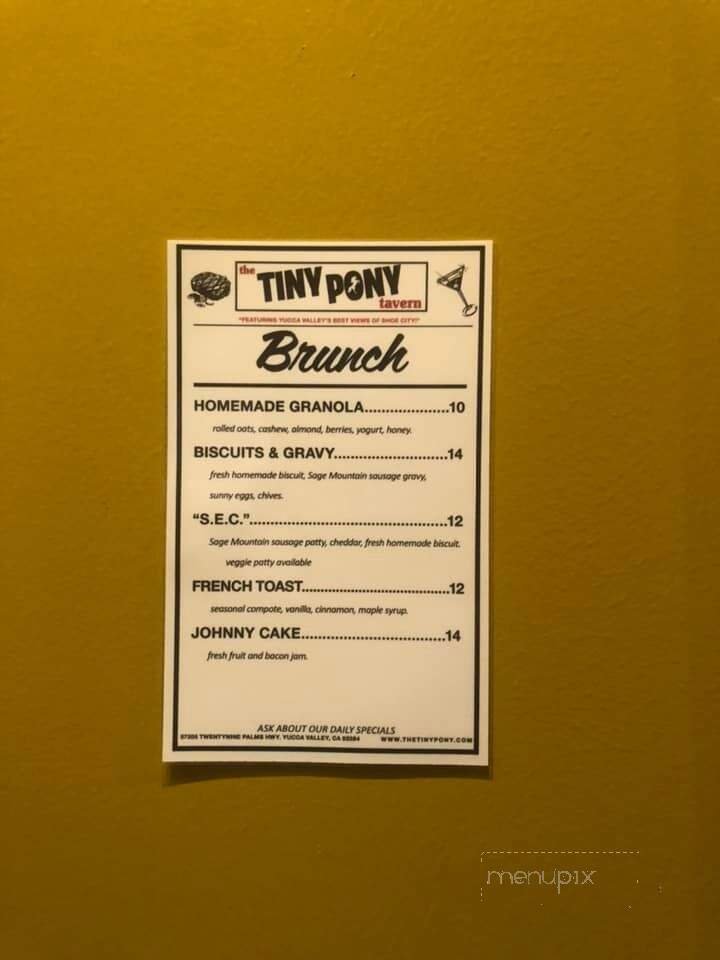 the
TINY PONY
tavern
"FEATURING YUCCA VALLEY'S BEST VIEWS OF SHOE CITY!"
Brunch
HOMEMADE GRANOLA....................10
rolled oats, cashew, almond, berries, yogurt, honey.
BISCUITS & GRAVY...........................14
fresh homemade biscuit, Sage Mountain sausage gravy,
sunny eggs, chives.
"S.E.C."...............................................12
Sage Mountain sausage patty, cheddar, fresh homemade biscuit.
veggie patty available
FRENCH TOAST...................................12
seasonal compote, vanilla, cinnamon, maple syrup.
JOHNNY CAKE..................................14
fresh fruit and bacon jam.
ASK ABOUT OUR DAILY SPECIALS
TWENTYNINE PALMS HWY. YUCCA VALLEY, CA WWW.THETINYPONY.COM
menupix